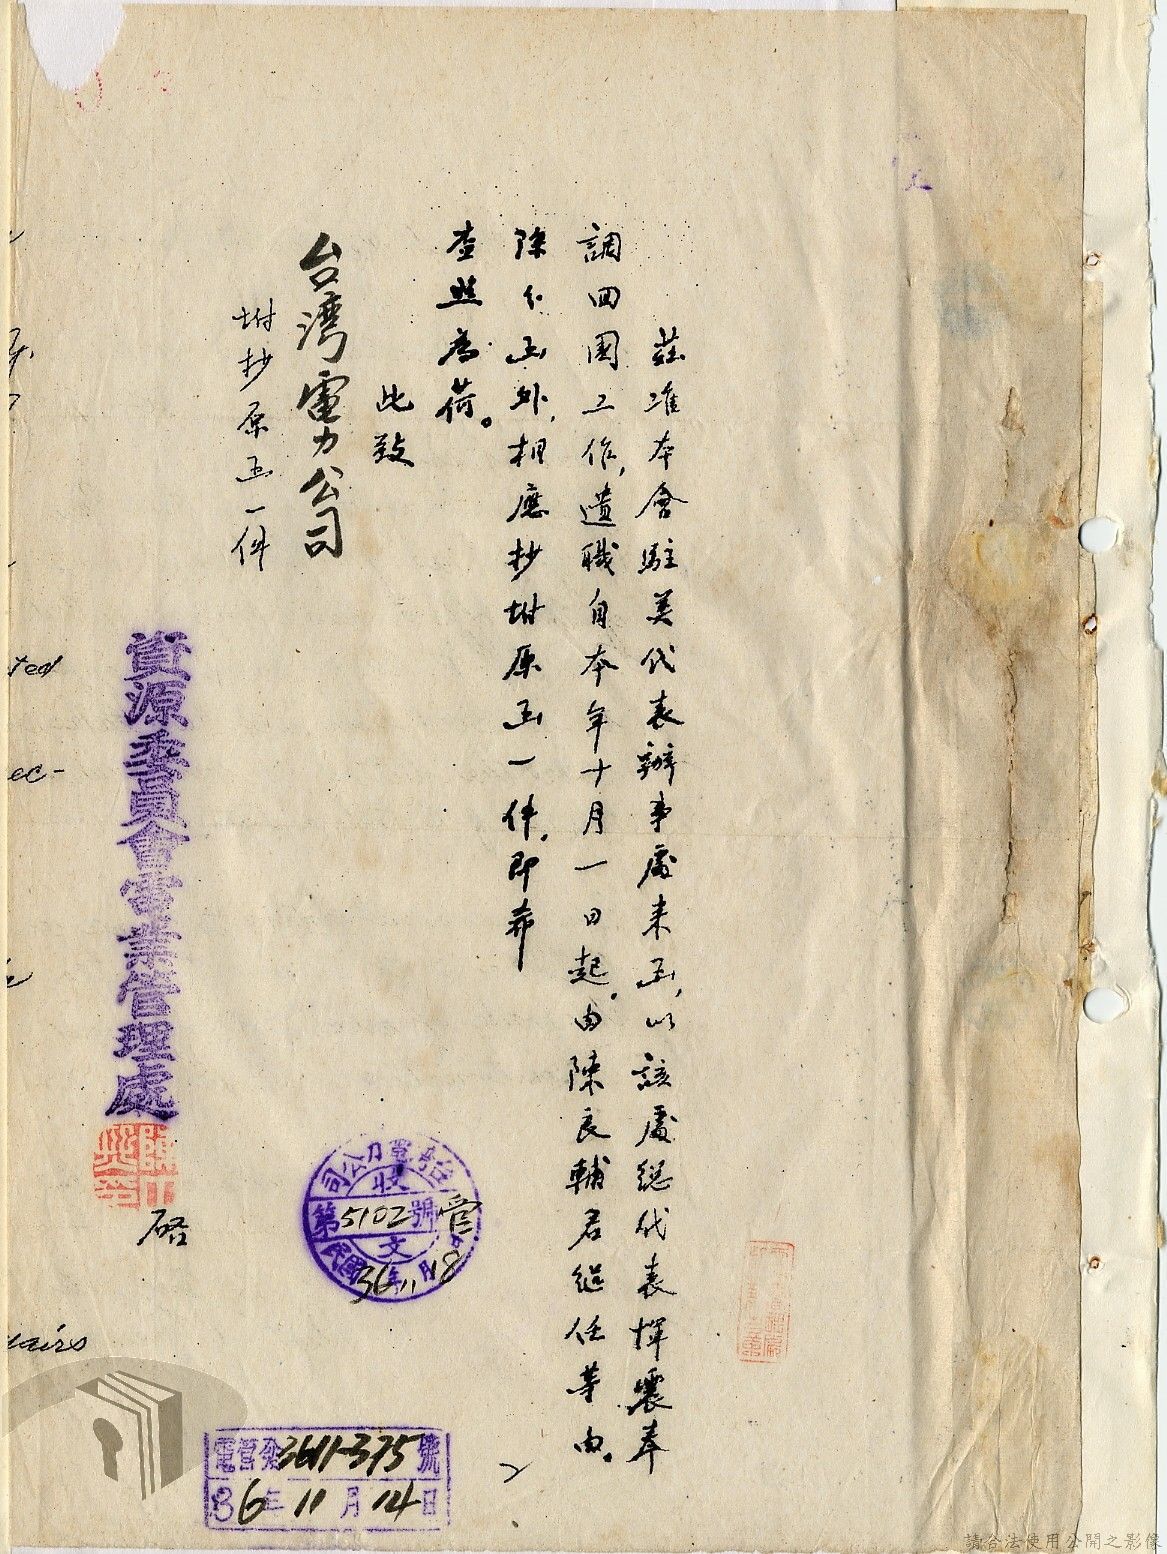 茲准本會駐美代表辦事處来函,以該處総代表惲震奉
調回國工作,遺職自本年十月一日起,由陳良輔君继任等由。
除分函外,相應抄坿原函一件,即希
查照為荷。
此致
台湾電力公司
坿抄原函一件
資源委員會電業管理處
啓
台電力公司
收
第5102號
文
民國36年11月18
管
電管發3611-375號
36年11月14日
ted
ec-
airs
請合法使用公開之影像